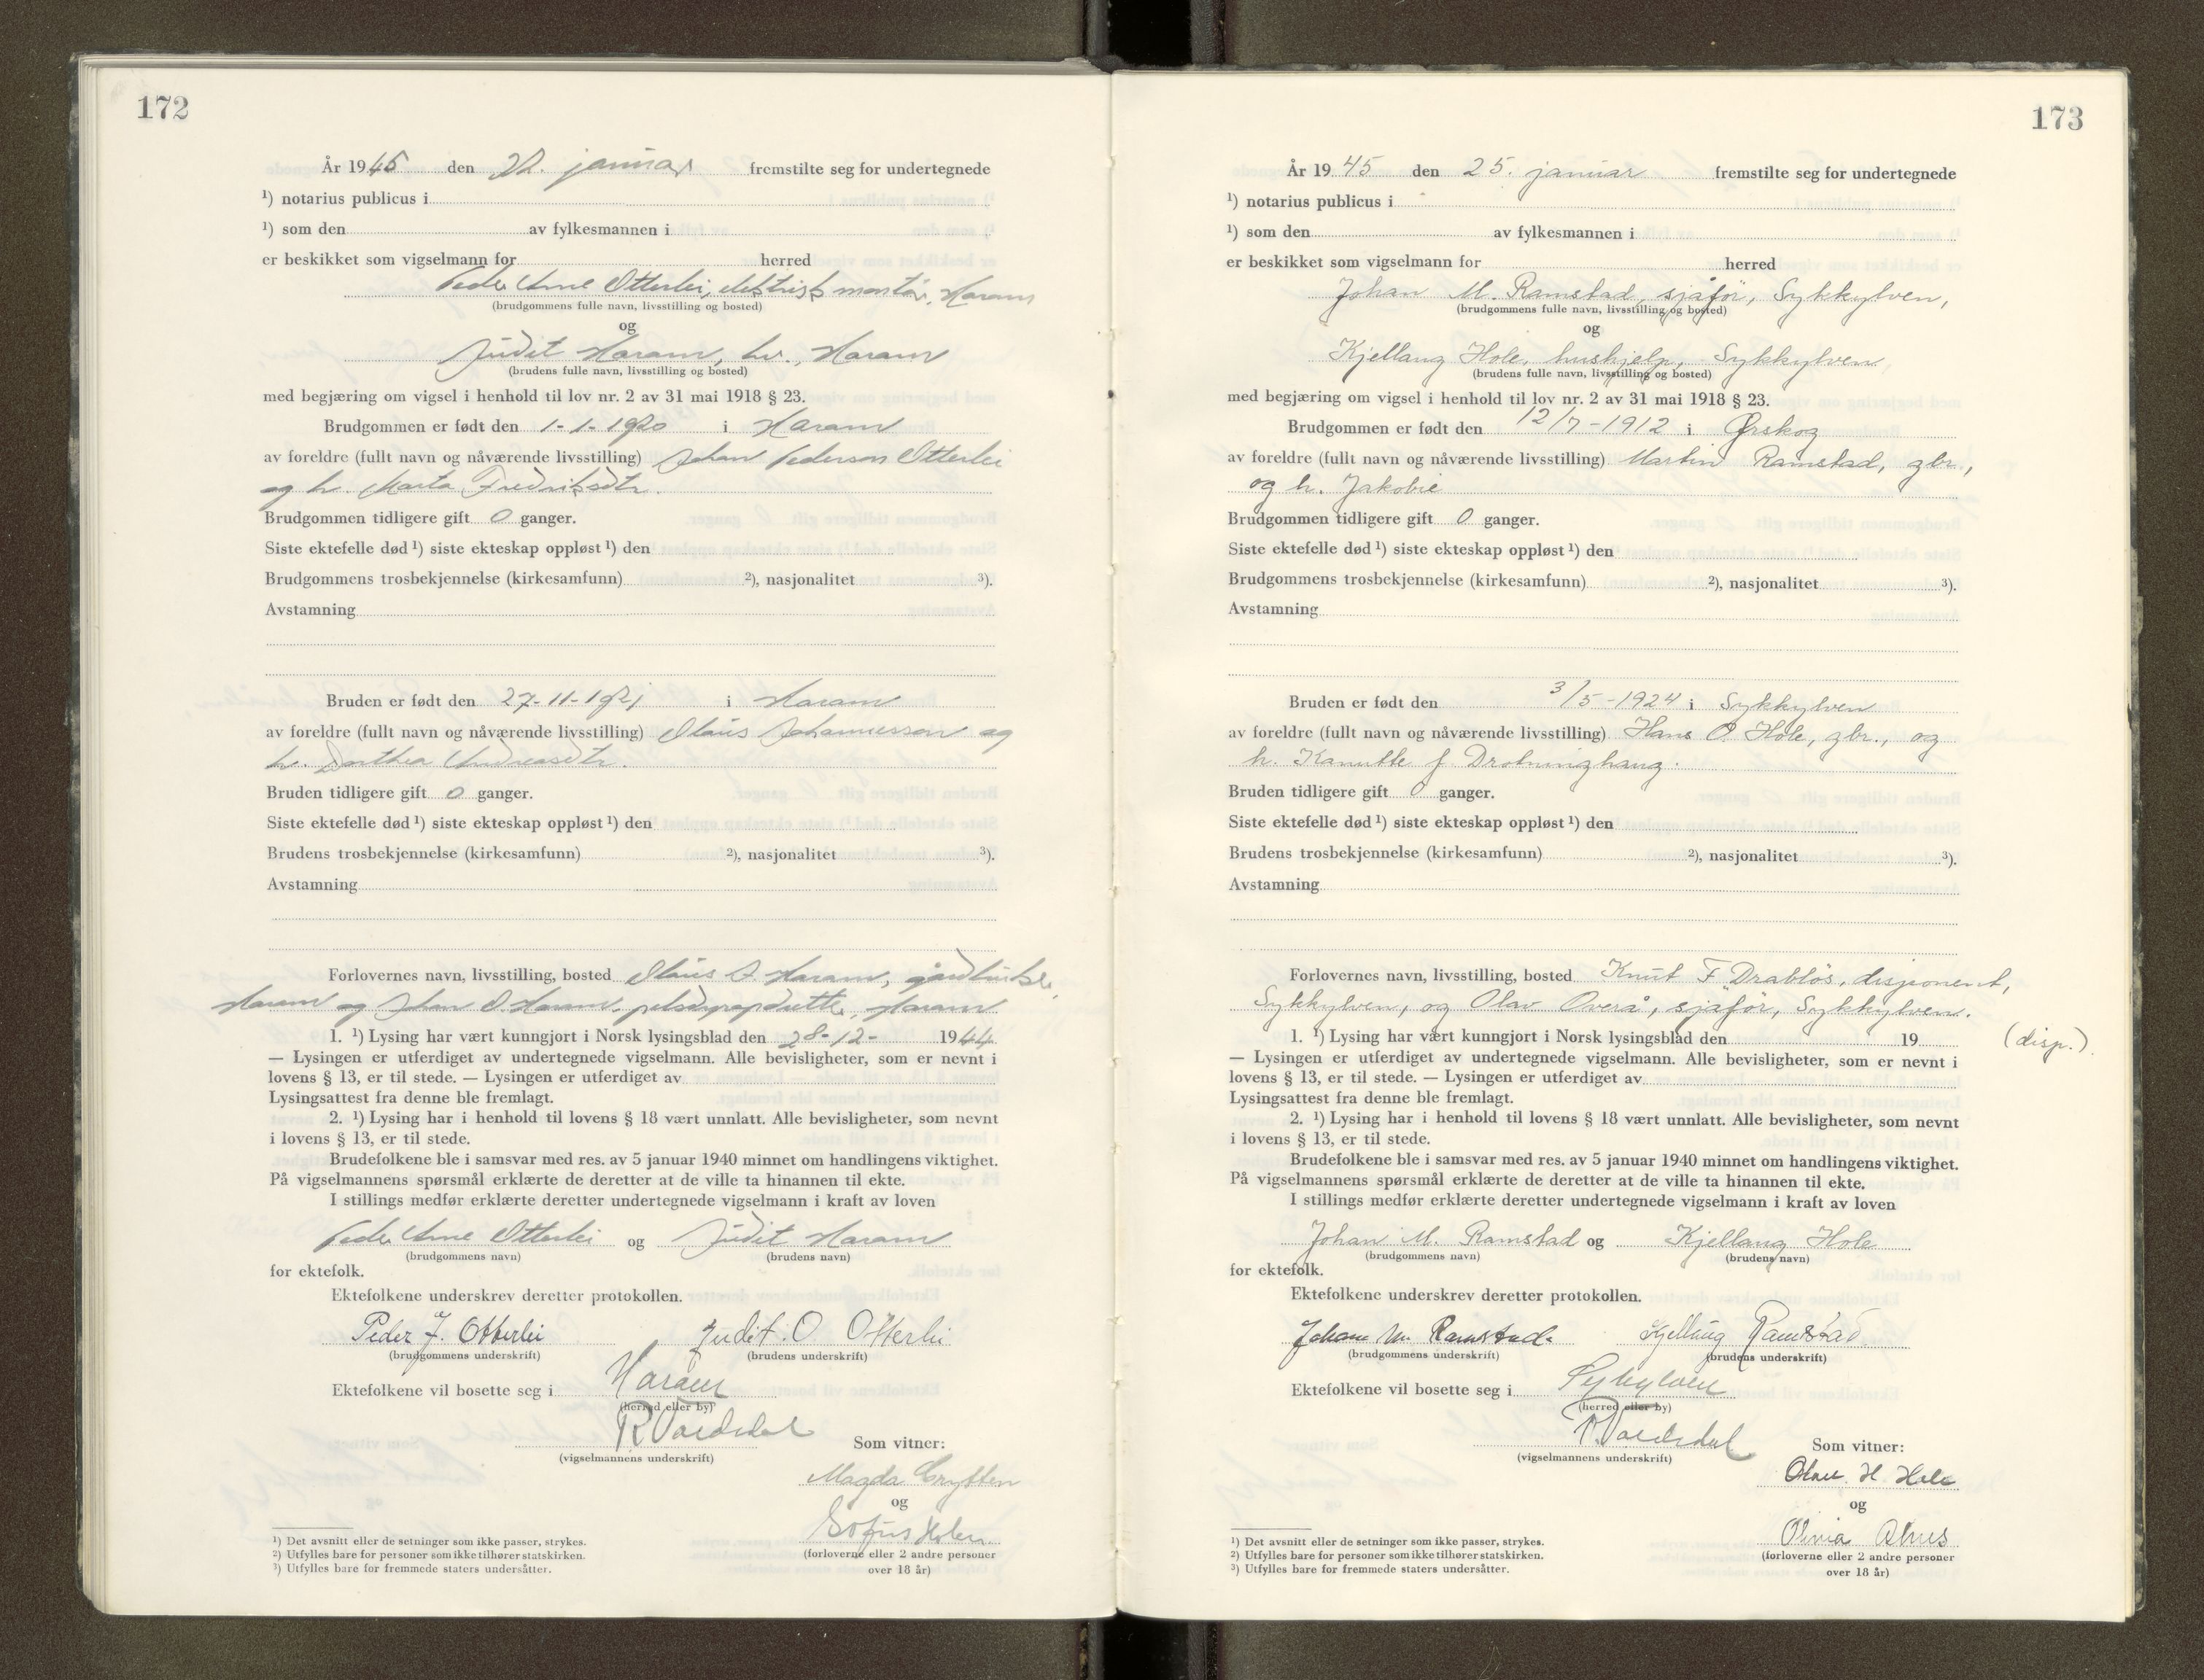 172
År 1945 den 22. januar fremstilte seg for undertegnede
¹) notarius publicus i
¹) som den av fylkesmannen i
er beskikket som vigselmann for herred
Peder Arne Otterlei, elektrisk montør, Haram
(brudgommens fulle navn, livsstilling og bosted)
og
Judit Haram, hv., Haram
(brudens fulle navn, livsstilling og bosted)
med begjæring om vigsel i henhold til lov nr. 2 av 31 mai 1918 § 23.
Brudgommen er født den 1-1-1920 i Haram
av foreldre (fullt navn og nåværende livsstilling) Johan Pederson Otterlei
og h. Marta Fredriksdtr.
Brudgommen tidligere gift 0 ganger.
Siste ektefelle død¹) siste ekteskap oppløst¹) den
Brudgommens trosbekjennelse (kirkesamfunn) ²), nasjonalitet ³).
Avstamning
Bruden er født den 27-11-1921 i Haram
av foreldre (fullt navn og nåværende livsstilling) Olaus Johannesson og
h. Dorthea Andreasdtr.
Bruden tidligere gift 0 ganger.
Siste ektefelle død¹) siste ekteskap oppløst¹) den
Brudens trosbekjennelse (kirkesamfunn) ²), nasjonalitet ³).
Avstamning
Forlovernes navn, livsstilling, bosted Olaus J. Haram, gardbruker,
Haram og Johan O. Haram, pelsdyroppdretter, Haram
1. ¹) Lysing har vært kunngjort i Norsk lysingsblad den 28-12- 1944
— Lysingen er utferdiget av undertegnede vigselmann. Alle bevisligheter, som er nevnt i
lovens § 13, er til stede. — Lysingen er utferdiget av
Lysingsattest fra denne ble fremlagt.
2. ¹) Lysing har i henhold til lovens § 18 vært unnlatt. Alle bevisligheter, som nevnt
i lovens § 13, er til stede.
Brudefolkene ble i samsvar med res. av 5 januar 1940 minnet om handlingens viktighet.
På vigselmannens spørsmål erklærte de deretter at de ville ta hinannen til ekte.
I stillings medfør erklærte deretter undertegnede vigselmann i kraft av loven
Peder Arne Otterlei og Judit Haram
(brudgommens navn) (brudens navn)
for ektefolk.
Ektefolkene underskrev deretter protokollen.
Peder J. Otterlei Judit O Otterlei
(brudgommens underskrift) (brudens underskrift)
Ektefolkene vil bosette seg i Haram
(herred eller by)
(vigselmannens underskrift)
Som vitner:
Magda Grytten
og
Sofus Holen
(forloverne eller 2 andre personer
over 18 år)
¹) Det avsnitt eller de setninger som ikke passer, strykes.
²) Utfylles bare for personer som ikke tilhører statskirken.
³) Utfylles bare for fremmede staters undersåtter.
173
År 1945 den 25. januar fremstilte seg for undertegnede
¹) notarius publicus i
¹) som den av fylkesmannen i
er beskikket som vigselmann for herred
Johan M. Ramstad, sjåfør, Sykkylven,
(brudgommens fulle navn, livsstilling og bosted)
og
Kjellaug Hole, hushjelp, Sykkylven
(brudens fulle navn, livsstilling og bosted)
med begjæring om vigsel i henhold til lov nr. 2 av 31 mai 1918 § 23.
Brudgommen er født den 12/7-1912 i Ørskog
av foreldre (fullt navn og nåværende livsstilling) Martin Ramstad, gbr.,
og h. Jakobie
Brudgommen tidligere gift 0 ganger.
Siste ektefelle død¹) siste ekteskap oppløst¹) den
Brudgommens trosbekjennelse (kirkesamfunn) ²), nasjonalitet ³).
Avstamning
Bruden er født den 3/5-1924 i Sykkylven
av foreldre (fullt navn og nåværende livsstilling) Hans O. Hole, gbr., og
h. Kanutte f. Drotninghaug.
Bruden tidligere gift 0 ganger.
Siste ektefelle død¹) siste ekteskap oppløst¹) den
Brudens trosbekjennelse (kirkesamfunn) ²), nasjonalitet ³).
Avstamning
Forlovernes navn, livsstilling, bosted Knut F Drabløs, disponent,
Sykkylven, og Olav Overå, sjåfør, Sykkylven.
1. ¹) Lysing har vært kunngjort i Norsk lysingsblad den 19 (disp.)
— Lysingen er utferdiget av undertegnede vigselmann. Alle bevisligheter, som er nevnt i
lovens § 13, er til stede. — Lysingen er utferdiget av
Lysingsattest fra denne ble fremlagt.
2. ¹) Lysing har i henhold til lovens § 18 vært unnlatt. Alle bevisligheter, som nevnt
i lovens § 13, er til stede.
Brudefolkene ble i samsvar med res. av 5 januar 1940 minnet om handlingens viktighet.
På vigselmannens spørsmål erklærte de deretter at de ville ta hinannen til ekte.
I stillings medfør erklærte deretter undertegnede vigselmann i kraft av loven
Johan M. Ramstad og Kjellaug Hole
(brudgommens navn) (brudens navn)
for ektefolk.
Ektefolkene underskrev deretter protokollen.
Johan M. Ramstad. Kjellaug Ramstad
(brudgommens underskrift) (brudens underskrift)
Ektefolkene vil bosette seg i Sykylven
(herred eller by)
(vigselmannens underskrift)
Som vitner:
Olav H. Hole
og
Olivia
(forloverne eller 2 andre personer
over 18 år)
¹) Det avsnitt eller de setninger som ikke passer, strykes.
²) Utfylles bare for personer som ikke tilhører statskirken.
³) Utfylles bare for fremmede staters undersåtter.